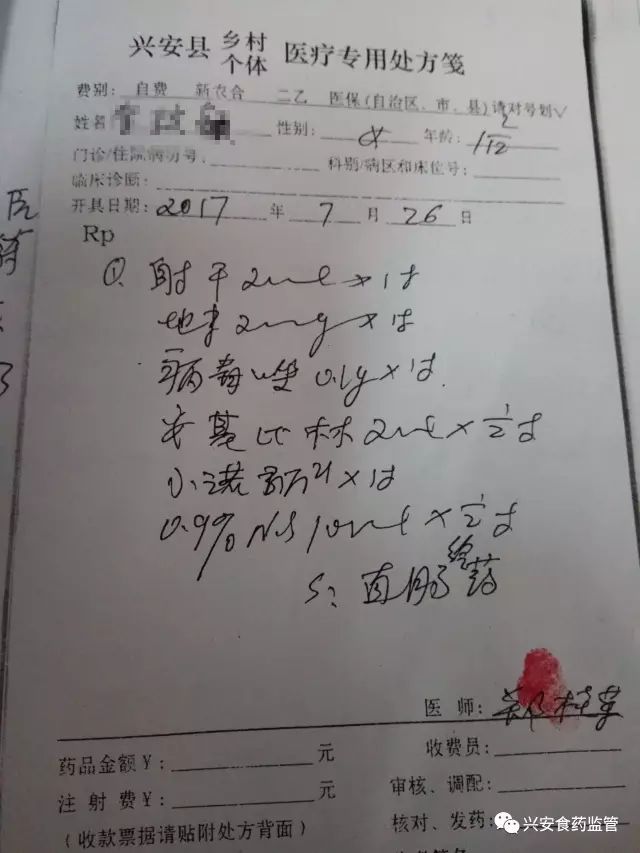 兴安县 乡村 个体 医疗专用处方笺
费别: 自费 新农合 二乙 医保(自治区、市、县)请对号划√
姓名 性别: 女 年龄:
门诊/住院病历号: 科别/病区和床位号:
临床诊断:
开具日期: 2017 年 7 月 26 日
Rp
①. 射干 2ml × 1支
地米 2mg × 1支
病毒唑 0.1g × 1支
安基比林 2ml × 1/2支
小诺 × 1支
0.9% NS 10ml × 1/2支
S: 直肠给药
医 师:
药品金额¥: 元
收费员:
注 射 费¥: 元
审核、调配:
(收款票据请贴附处方背面)
核对、发药:
兴安食药监管
医